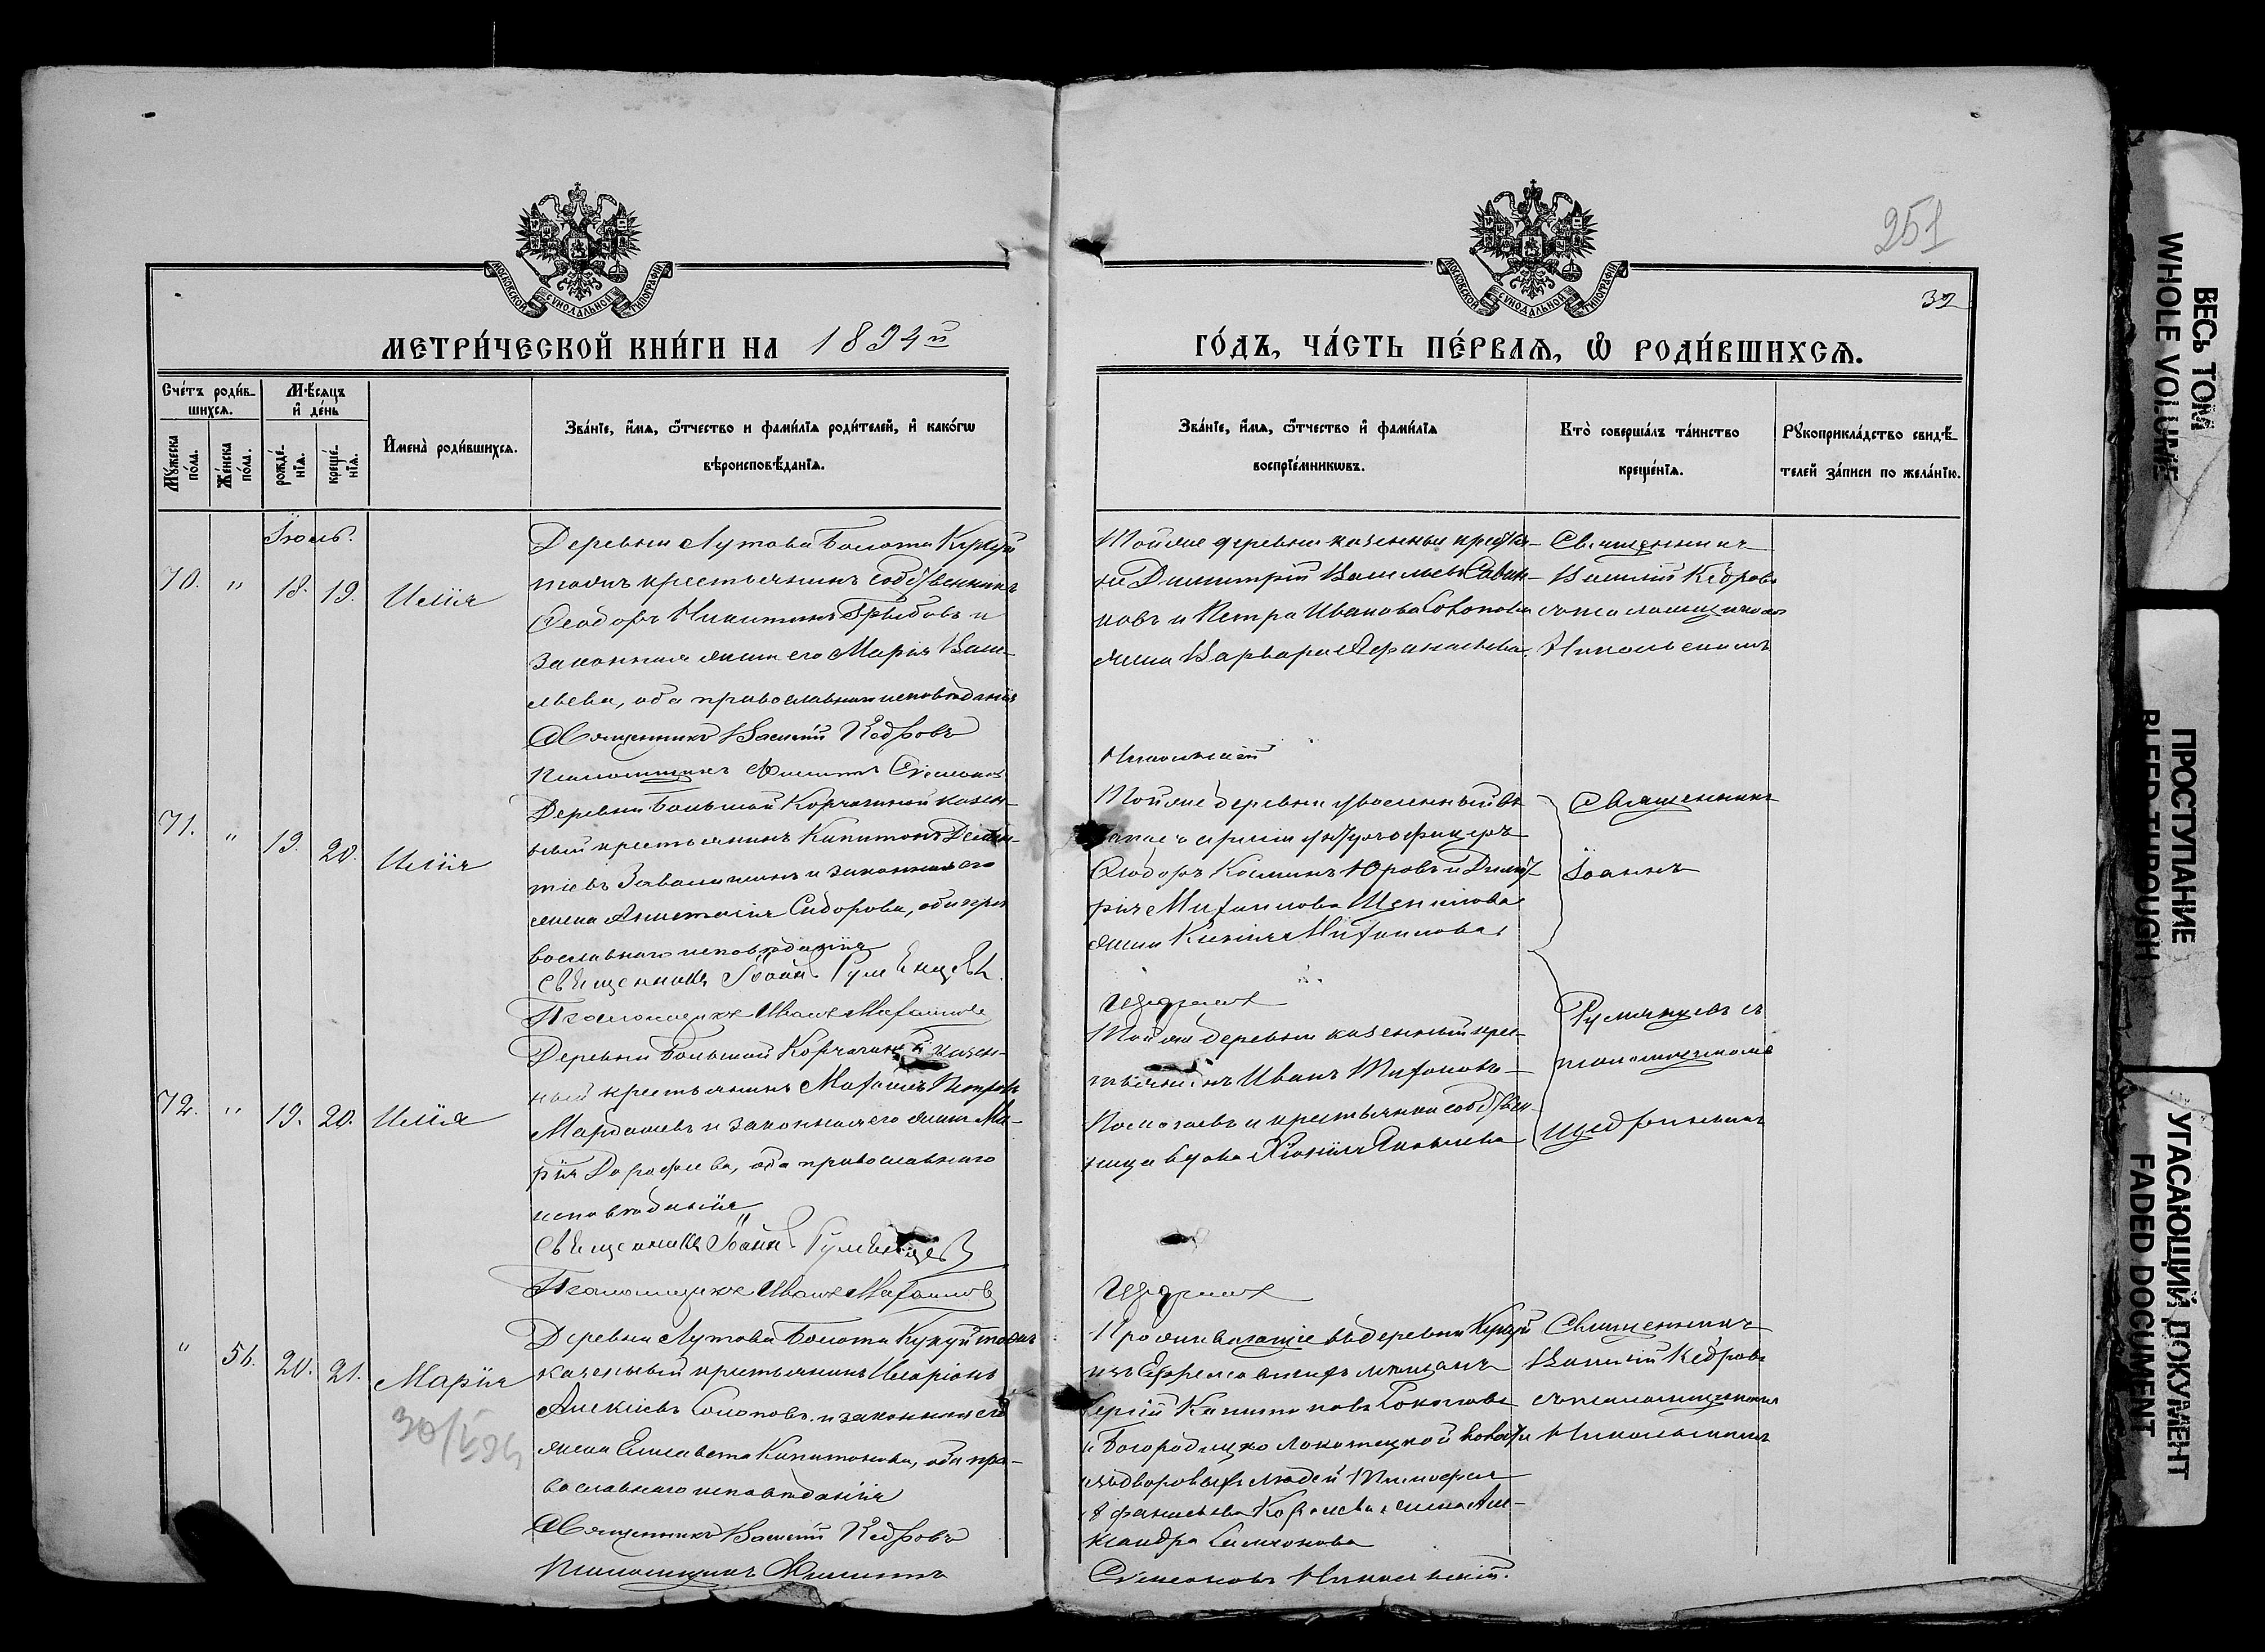 251
32
МОСКОВСКОЙ СѴНОДАЛЬНОЙ ТИПОГРАФІИ
МОСКОВСКОЙ СѴНОДАЛЬНОЙ ТИПОГРАФІИ
МЕТРИ́ЧЕСКОЙ КНИ́ГИ НА 1894й
ГО́ДЪ, ЧА́СТЬ ПЕ́РВАѦ, Ѡ҆ РОДИ́ВШИХСѦ.
Сче́тъ роди́в-
шихсѧ.
Му́жеска по́ла.
Же́нска по́ла.
Мѣсѧцъ
и҆ де́нь
рожде́-
нїѧ.
креще́-
нїѧ.
И҆мена̀ роди́вшихсѧ.
Зва́нїе, и҆́мѧ, ѻ҆́тчество и фами́лїѧ роди́телей, и҆ како́гѡ
вѣроисповѣ́данїѧ.
Зва́нїе, и҆́мѧ, ѻ҆́тчество и҆ фами́лїѧ
воспрїе́мникѡвъ.
Кто̀ соверша́лъ та́инство
креще́нїѧ.
Рꙋкоприкла́дство свидѣ́-
телей за́писи по жела́нїю.
Іюль.
70. " 18. 19. Илія
Деревни Лутова Болота Кукуй
тожъ крестьянинъ собственникъ
Ѳеодоръ Никитинъ Грыбовъ и
законная жена его Марія Васи-
льева, оба православнаго исповѣданія
Священникъ Василій Кедровъ
Псаломщикъ Филиппъ Сѵмеоновъ
Тойже деревни казенные кресть-
не Димитрій Васильевъ Савин-
ковъ и Петра Иванова Солопова
жена Варвара Афанасьева.
Никольскій
Священникъ
Василій Кедровъ
съ псаломщикомъ
Никольскимъ
71. " 19. 20. Илія
Деревни Большой Корчагиной казен-
ный крестьянинъ Капитонъ Демен-
тіевъ и законная его
жена Анастасія Сидорова, оба пра-
вославнаго исповѣданія
Священникъ Іоаннъ Румянцевъ.
Псаломщикъ Иванъ Михаиловъ
Тойже деревни уволенный въ
запасъ арміи унтеръ офицеръ
Ѳеодоръ Косминъ Юровъ и Димит-
рія Михаилова Щепилова
жена Ксенія Михаилова
Священникъ
Іоаннъ
72. " 19. 20. Илія
Деревни Большой Корчагиной казен-
ный крестьянинъ Михаилъ Петровъ
Мардашевъ и законная его жена Ма-
рія Дорофеева, оба православнаго
исповѣданія
Священникъ Іоаннъ Румянцевъ
Псаломщикъ Иванъ Михаиловъ
Тойже деревни казенный крес-
тьянинъ Иванъ Тихоновъ
и крестьянка собствен-
ница вдова Ксенія Яковлева
Румянцевъ съ
псаломщикомъ
" 51. 20. 21. Марія
Деревни Лутова Болота Кукуй тожъ
казеный крестьянинъ Иларіонъ
Алексіевъ Солоповъ и законная его
жена Елисавета Капитонова, оба пра-
вославнаго исповѣданія
Священникъ Василій Кедровъ
Псаломщикъ Филиппъ
Проживающіе въ деревни Кукуй
изъ Ефремовскихъ мѣщанъ
Сергій Капитоновъ Соколовъ
и Богородицко Локотецкой волости
издворовыхъ людей Тимофея
Афанасьева жена Але-
ксандра Симеонова
Сѵмеоновъ Никольскій.
Священникъ
Василій Кедровъ
съ псаломщикомъ
Никольскимъ
ВЕСЬ ТОМ
WHOLE VOLUME
ПРОСТУПАНИЕ
BLEED THROUGH
УГАСАЮЩИЙ ДОКУМЕНТ
FADED DOCUMENT